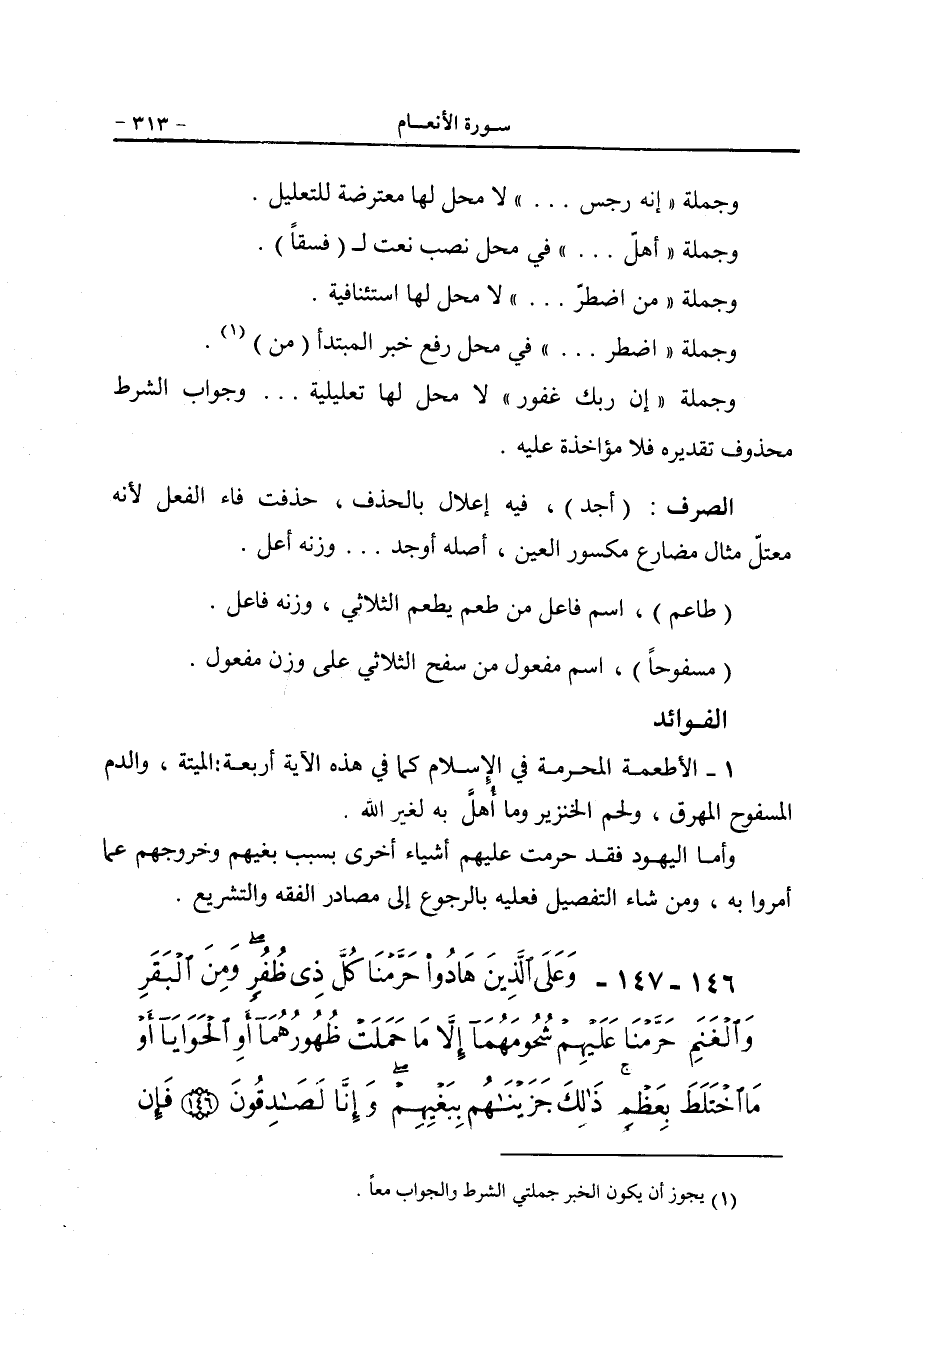 سورة الأنعام - ٣١٣ -
وجملة « إنه رجس . . . » لا محل لها معترضة للتعليل .
وجملة « أهلّ . . . » في محل نصب نعت لـ ( فسقاً ) .
وجملة « من اضطرّ . . . » لا محل لها استئنافية .
وجملة « اضطر . . . » في محل رفع خبر المبتدأ ( من ) (١) .
وجملة « إن ربك غفور » لا محل لها تعليلية . . . وجواب الشرط
محذوف تقديره فلا مؤاخذة عليه .
الصرف : ( أجد ) ، فيه إعلال بالحذف ، حذفت فاء الفعل لأنه
معتلّ مثال مضارع مكسور العين ، أصله أوجد . . . وزنه أعل .
( طاعم ) ، اسم فاعل من طعم يطعم الثلاثي ، وزنه فاعل .
( مسفوحاً ) ، اسم مفعول من سفح الثلاثي على وزن مفعول .
الفوائد
١ - الأطعمة المحرمة في الإسلام كما في هذه الآية أربعة:الميتة ، والدم
المسفوح المهرق ، ولحم الخنزير وما أُهلَّ به لغير الله .
وأما اليهود فقد حرمت عليهم أشياء أخرى بسبب بغيهم وخروجهم عما
أمروا به ، ومن شاء التفصيل فعليه بالرجوع إلى مصادر الفقه والتشريع .
١٤٦ - ١٤٧ - وَعَلَى ٱلَّذِينَ هَادُوا۟ حَرَّمْنَا كُلَّ ذِى ظُفُرٍۖ وَمِنَ ٱلْبَقَرِ
وَٱلْغَنَمِ حَرَّمْنَا عَلَيْهِمْ شُحُومَهُمَآ إِلَّا مَا حَمَلَتْ ظُهُورُهُمَآ أَوِ ٱلْحَوَايَآ أَوْ
مَا ٱخْتَلَطَ بِعَظْمٍۚ ذَٰلِكَ جَزَيْنَٰهُم بِبَغْيِهِمْۖ وَإِنَّا لَصَٰدِقُونَ ﴿١٤٦﴾ فَإِن
(١) يجوز أن يكون الخبر جملتي الشرط والجواب معاً .